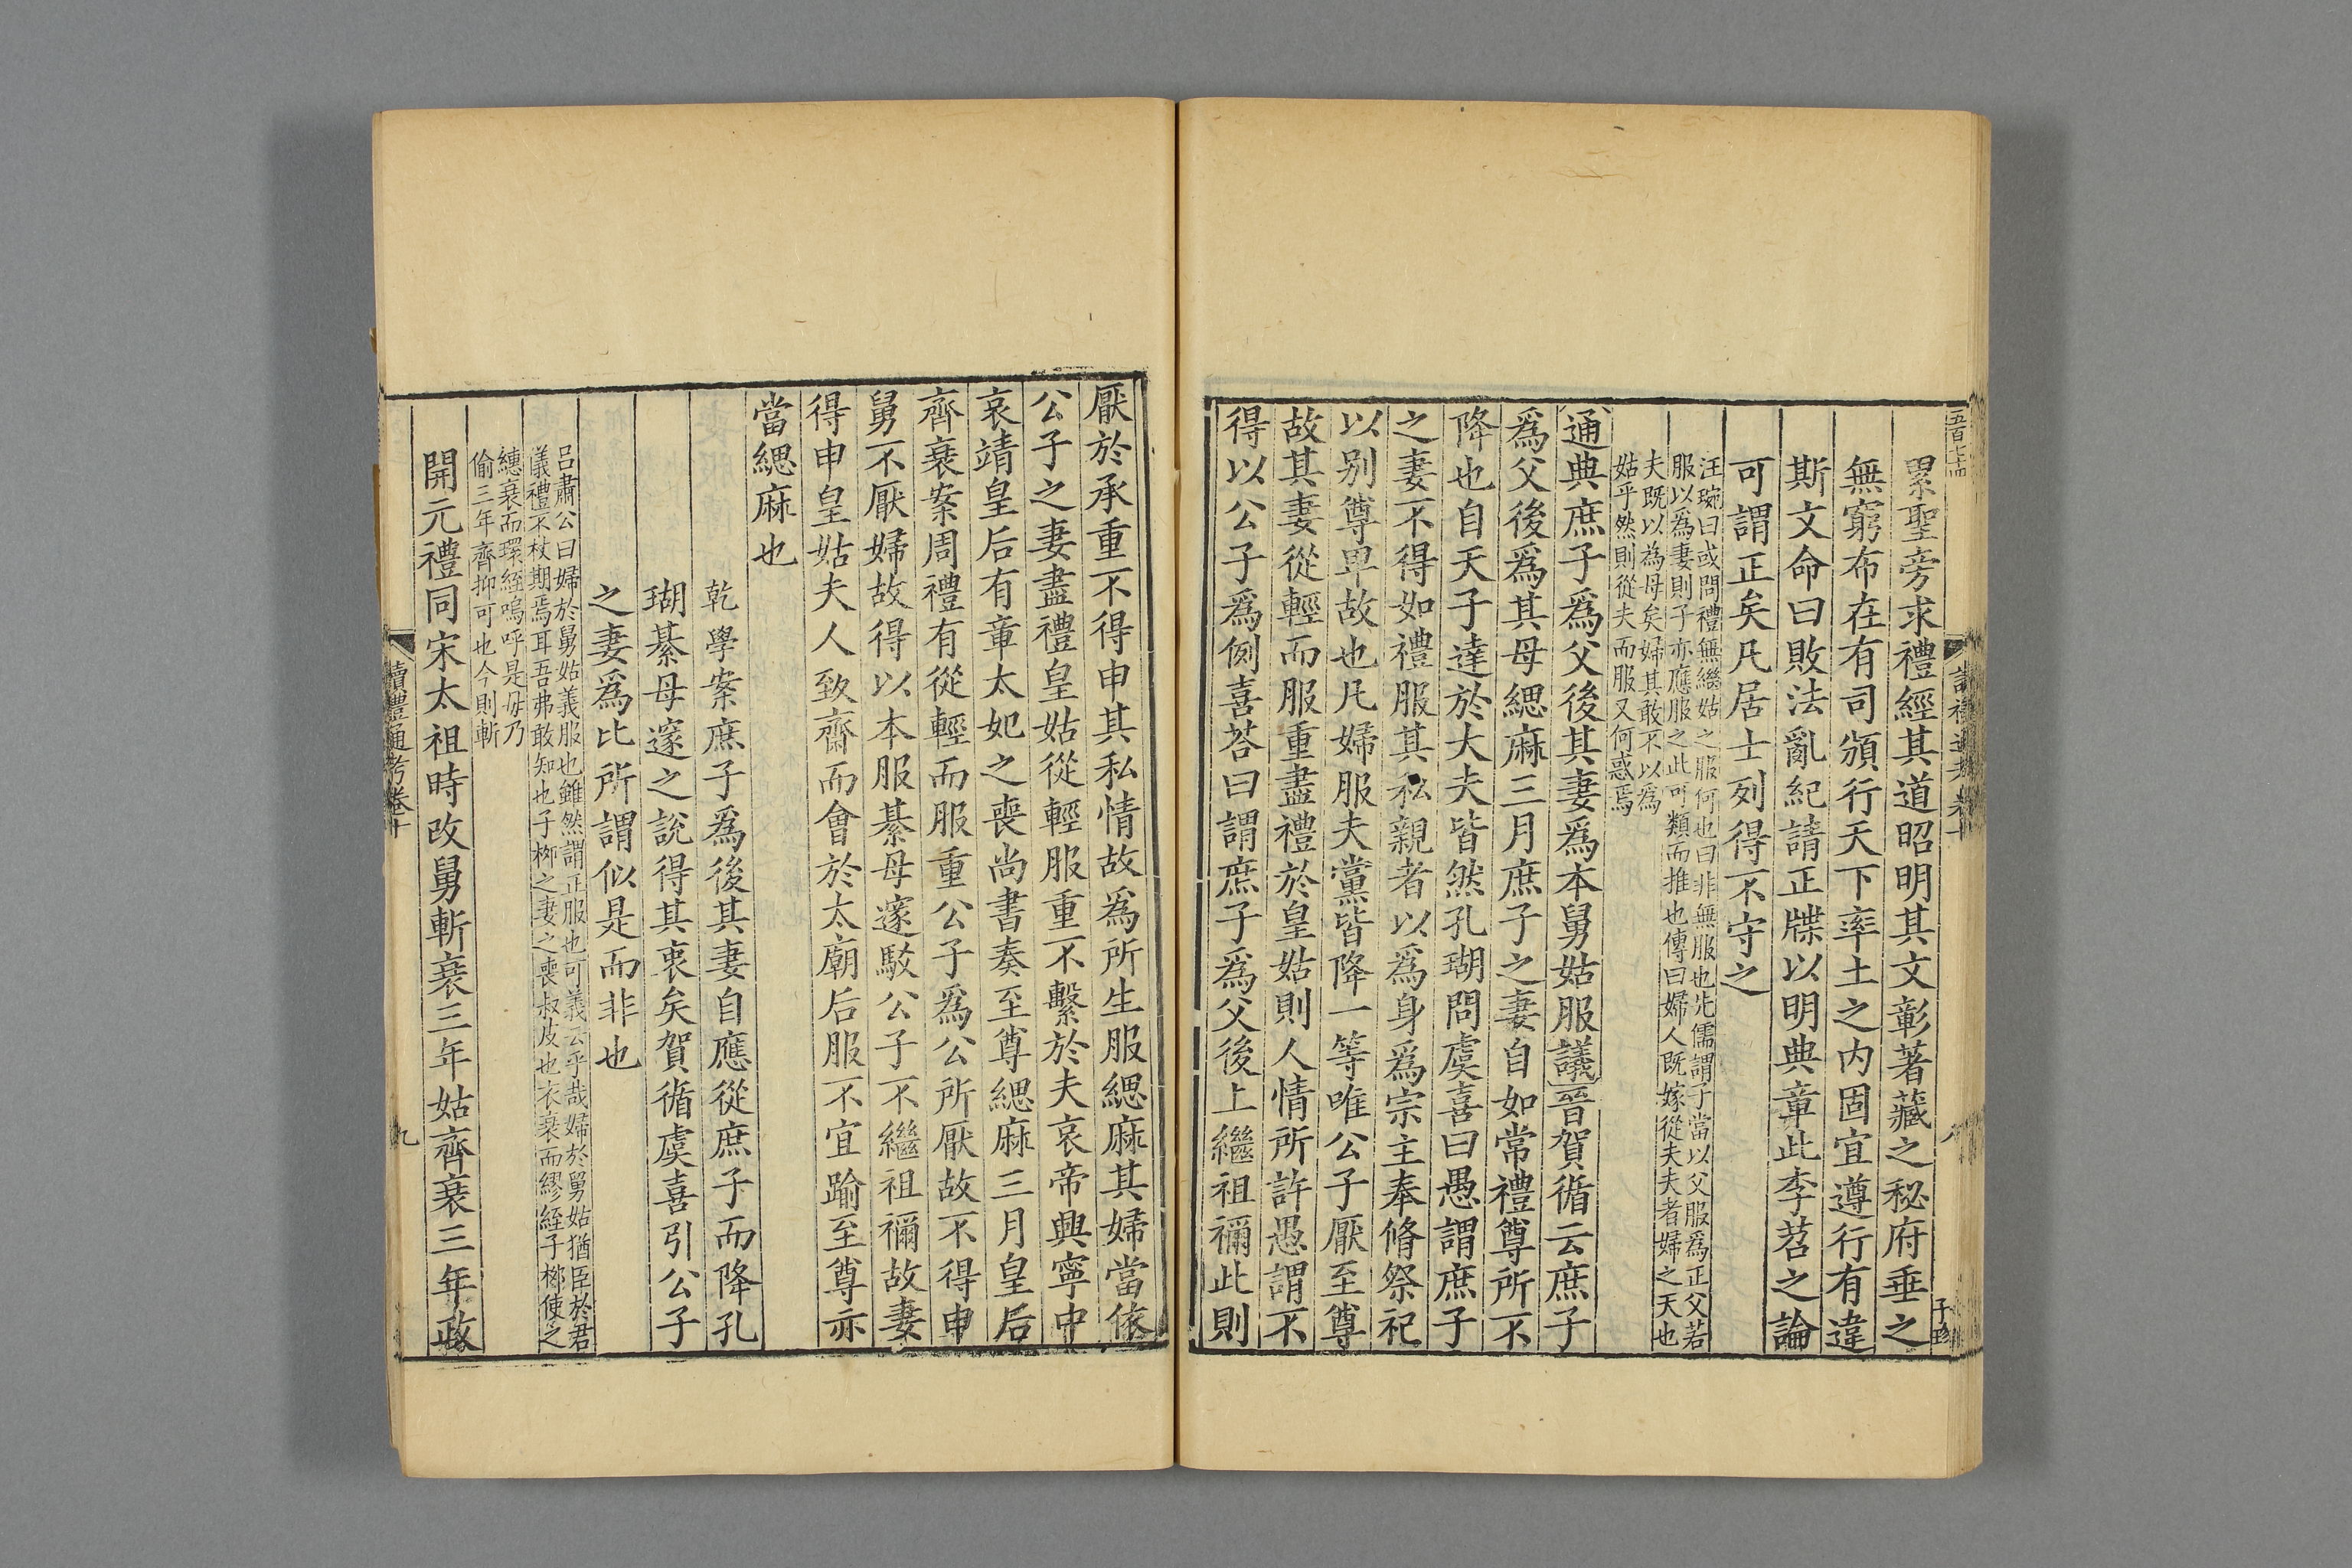 五百七十四
讀禮通考卷十
八
子珍
累聖旁求禮經其道昭明其文彰著藏之秘府垂之
無窮布在有司頒行天下率土之内固宜遵行有違
斯文命曰敗法亂紀請正牒以明典章此李岧之論
可謂正矣凡居士列得不守之
汪琬曰或問禮無繼姑之服何也曰非無服也先儒謂子當以父服爲正父若
服以爲妻則子亦應服之此可類而推也傳曰婦人既嫁從夫夫者婦之天也
夫既以為母矣婦其敢不以爲
姑乎然則從夫而服又何惑焉
通典庶子爲父後其妻爲本舅姑服議晉賀循云庶子
爲父後爲其母緦麻三月庶子之妻自如常禮尊所不
降也自天子達於大夫皆然孔瑚問虞喜曰愚謂庶子
之妻不得如禮服其私親者以爲身爲宗主奉脩祭祀
以别尊卑故也凡婦服夫黨皆降一等唯公子厭至尊
故其妻從輕而服重盡禮於皇姑則人情所許愚謂不
得以公子爲例喜荅曰謂庶子爲父後上繼祖禰此則
厭於承重不得申其私情故爲所生服緦麻其婦當依
公子之妻盡禮皇姑從輕服重不繫於夫哀帝興寧中
哀靖皇后有章太妃之喪尚書奏至尊緦麻三月皇后
齊衰案周禮有從輕而服重公子爲公所厭故不得申
舅不厭婦故得以本服綦母邃駁公子不繼祖禰故妻
得申皇姑夫人致齋而會於太廟后服不宜踰至尊亦
當緦麻也
乾學案庶子爲後其妻自應從庶子而降孔
瑚綦母邃之説得其衷矣賀循虞喜引公子
之妻爲比所謂似是而非也
呂肅公曰婦於舅姑義服也雖然謂正服也可義云乎哉婦於舅姑猶臣於君
儀禮不杖期焉耳吾弗敢知也子柳之妻之喪叔皮也衣衰而繆絰子柳使之
繐衰而環絰嗚呼是毋乃
偷三年齊抑可也今則斬
開元禮同宋太祖時改舅斬衰三年姑齊衰三年政
讀禮通考卷十
九